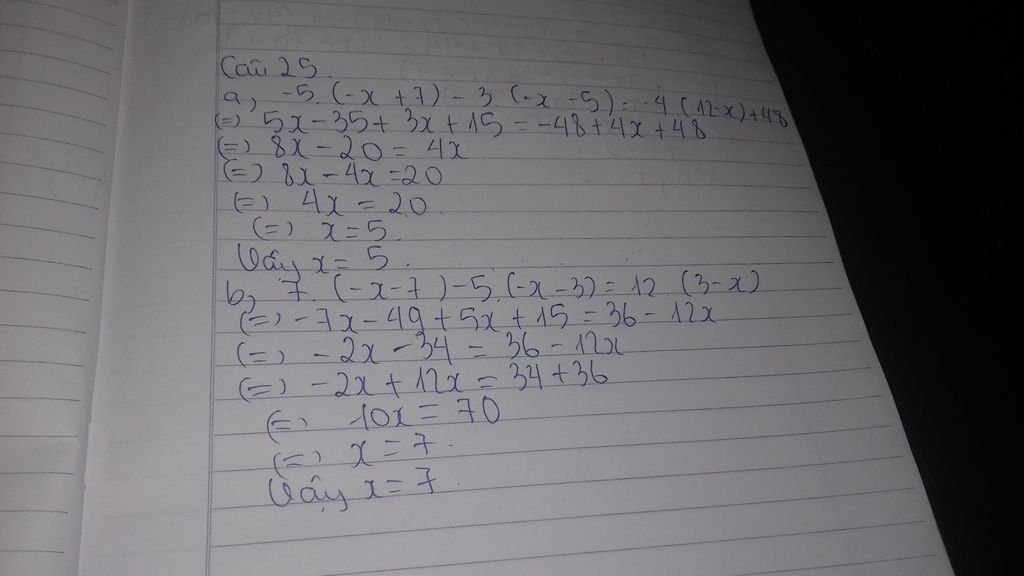 Câu 25.
a, -5. (-x + 7) - 3. (-x - 5) = -4 (12-x) + 48
(=) 5x - 35 + 3x + 15 = -48 + 4x + 48
(=) 8x - 20 = 4x
(=) 8x - 4x = 20
(=) 4x = 20
(=) x = 5.
Vậy x = 5.
b, 7. (-x - 7) - 5. (-x - 3) = 12 (3-x)
(=) -7x - 49 + 5x + 15 = 36 - 12x
(=) -2x - 34 = 36 - 12x
(=) -2x + 12x = 34 + 36
(=) 10x = 70
(=) x = 7.
Vậy x = 7.